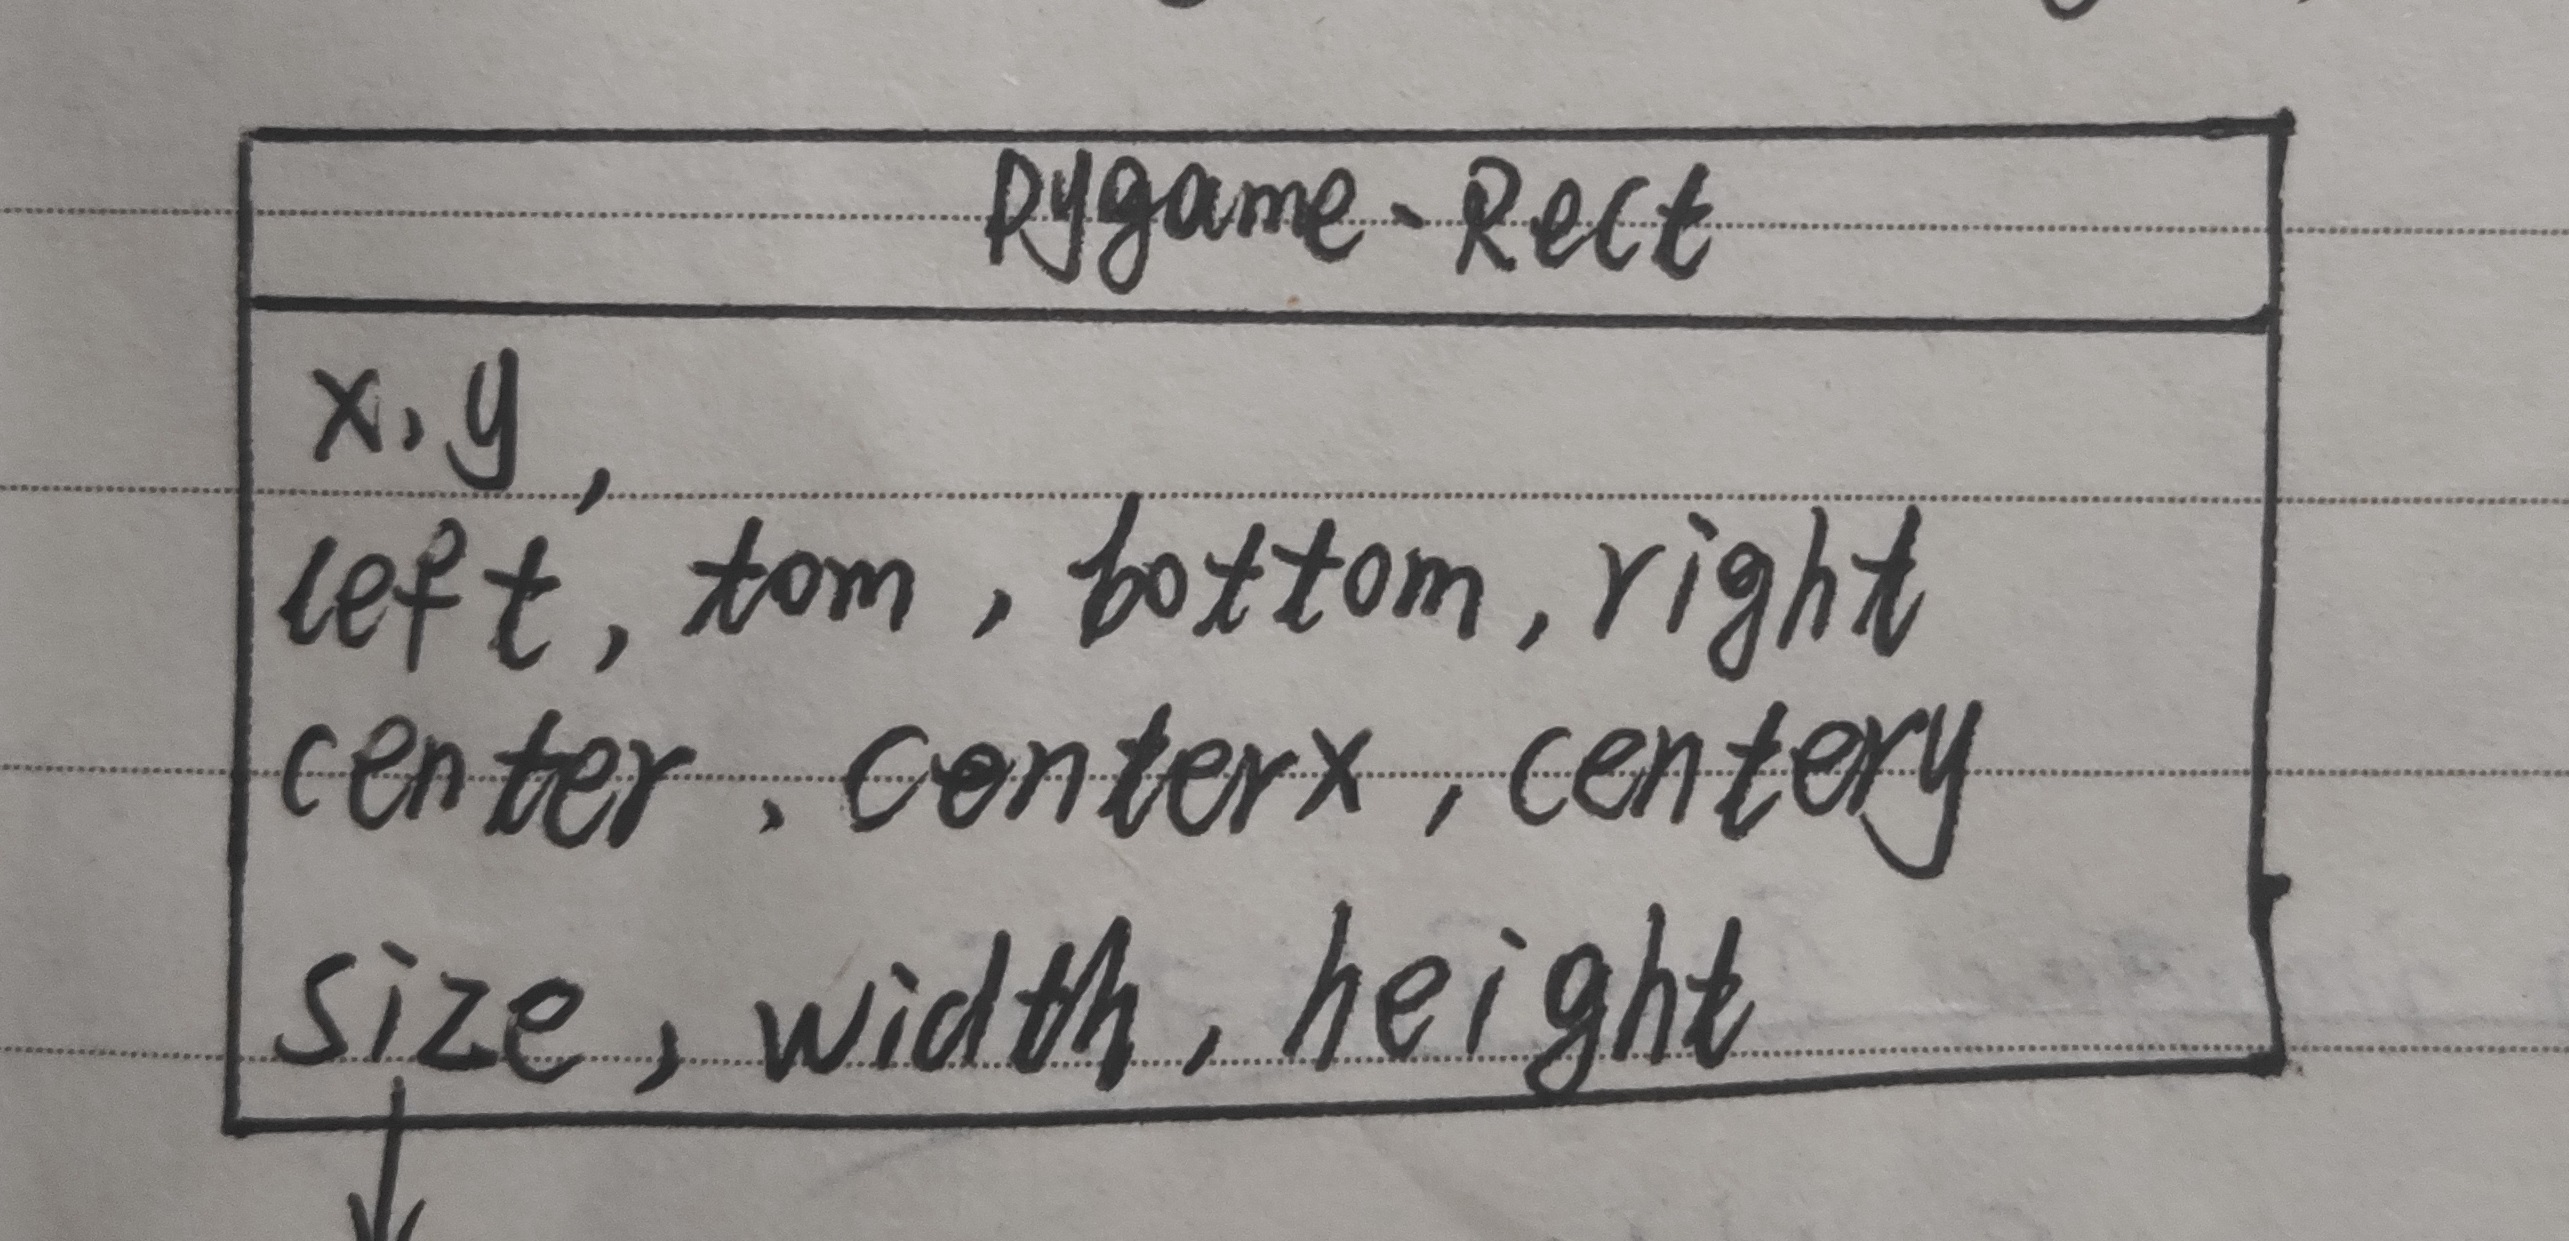 Pygame-Rect
x,y,
left, tom, bottom, right
center, centerx, centery
size, width, height